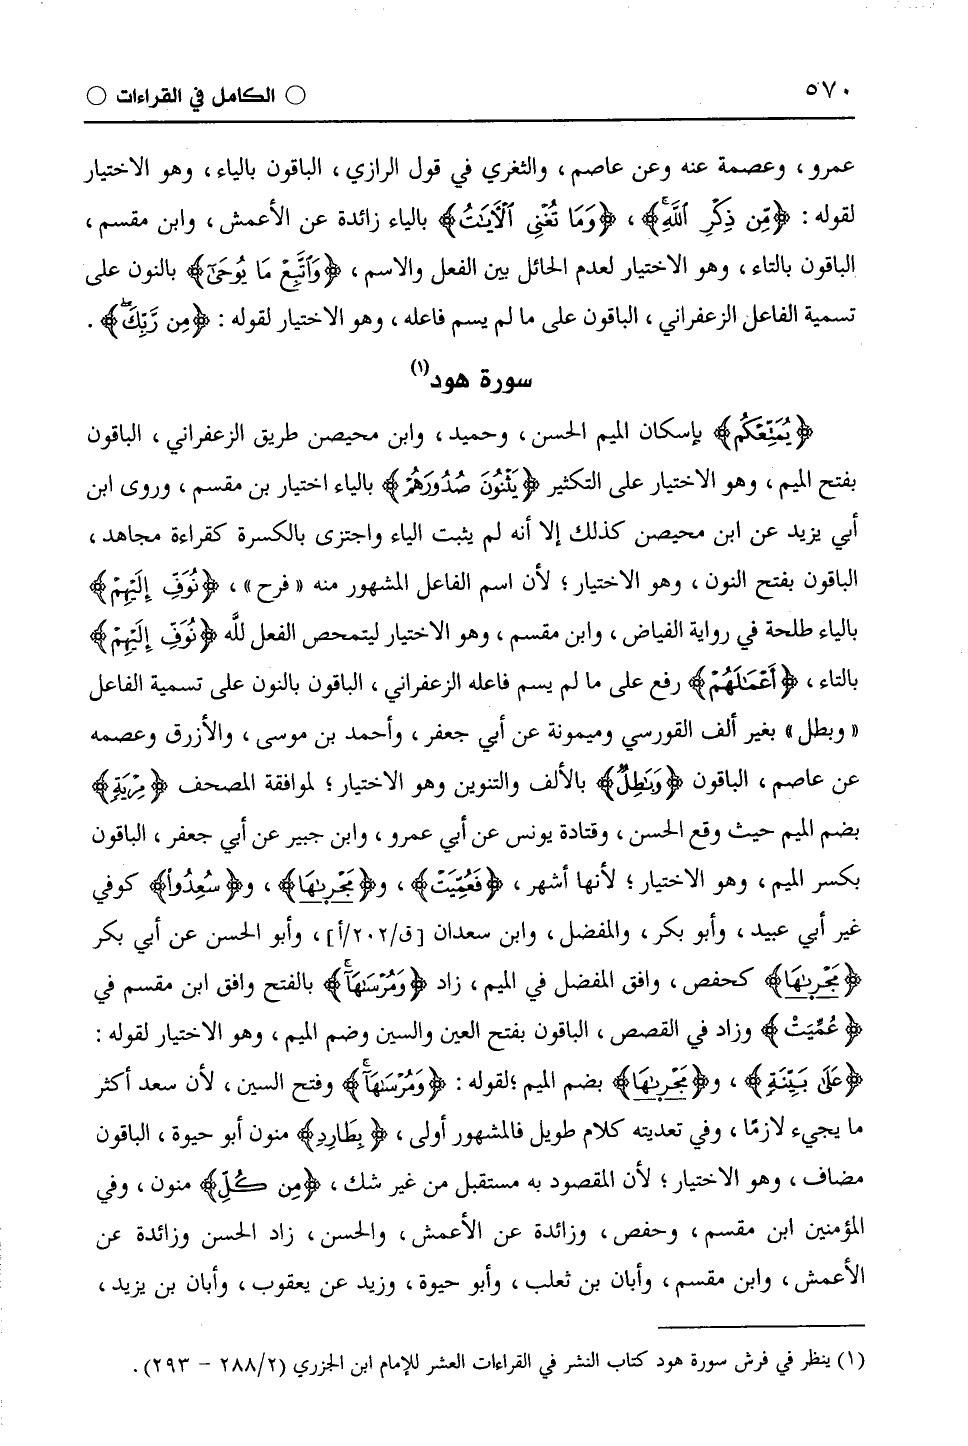 ٥٧٠
○ الكامل في القراءات ○
عمرو ، وعصمة عنه وعن عاصم ، والثغري في قول الرازي ، الباقون بالياء ، وهو الاختيار
لقوله : ﴿مِّن ذِكْرِ ٱللَّهِ﴾ ، ﴿وَمَا تُغْنِى ٱلْآيَٰتُ﴾ بالياء زائدة عن الأعمش ، وابن مقسم ،
الباقون بالتاء ، وهو الاختيار لعدم الحائل بين الفعل والاسم ، ﴿وَٱتَّبِعْ مَا يُوحَىٰٓ﴾ بالنون على
تسمية الفاعل الزعفراني ، الباقون على ما لم يسم فاعله ، وهو الاختيار لقوله : ﴿مِن رَّبِّكَ﴾ .
سورة هود(١)
﴿يُمَتِّعْكُم﴾ بإسكان الميم الحسن ، وحميد ، وابن محيصن طريق الزعفراني ، الباقون
بفتح الميم ، وهو الاختيار على التكثير ﴿يَثْنُونَ صُدُورَهُمْ﴾ بالياء اختيار بن مقسم ، وروى ابن
أبي يزيد عن ابن محيصن كذلك إلا أنه لم يثبت الياء واجتزى بالكسرة كقراءة مجاهد ،
الباقون بفتح النون ، وهو الاختيار ؛ لأن اسم الفاعل المشهور منه « فرح » ، ﴿نُوَفِّ إِلَيْهِمْ﴾
بالياء طلحة في رواية الفياض ، وابن مقسم ، وهو الاختيار ليتمحص الفعل لله ﴿نُوَفِّ إِلَيْهِمْ﴾
بالتاء ، ﴿أَعْمَٰلَهُمْ﴾ رفع على ما لم يسم فاعله الزعفراني ، الباقون بالنون على تسمية الفاعل
« وبطل » بغير ألف القورسي وميمونة عن أبي جعفر ، وأحمد بن موسى ، والأزرق وعصمه
عن عاصم ، الباقون ﴿وَبَٰطِلٌ﴾ بالألف والتنوين وهو الاختيار ؛ لموافقة المصحف ﴿مِرْيَةٍ﴾
بضم الميم حيث وقع الحسن ، وقتادة يونس عن أبي عمرو ، وابن جبير عن أبي جعفر ، الباقون
بكسر الميم ، وهو الاختيار ؛ لأنها أشهر ، ﴿فَعُمِّيَتْ﴾ ، و﴿مَجْر۪ىٰهَا﴾ ، و﴿سُعِدُوا۟﴾ كوفي
غير أبي عبيد ، وأبو بكر ، والمفضل ، وابن سعدان [ق/٢٠٢/أ] ، وأبو الحسن عن أبي بكر
﴿مَجْر۪ىٰهَا﴾ كحفص ، وافق المفضل في الميم ، زاد ﴿وَمُرْسَىٰهَآ﴾ بالفتح وافق ابن مقسم في
﴿عُمِّيَتْ﴾ وزاد في القصص ، الباقون بفتح العين والسين وضم الميم ، وهو الاختيار لقوله :
﴿عَلَىٰ بَيِّنَةٍ﴾ ، و﴿مَجْر۪ىٰهَا﴾ بضم الميم ؛لقوله : ﴿وَمُرْسَىٰهَآ﴾ وفتح السين ، لأن سعد أكثر
ما يجيء لازمًا ، وفي تعديته كلام طويل فالمشهور أولى ، ﴿بِطَارِدِ﴾ منون أبو حيوة ، الباقون
مضاف ، وهو الاختيار ؛ لأن المقصود به مستقبل من غير شك ، ﴿مِن كُلٍّ﴾ منون ، وفي
المؤمنين ابن مقسم ، وحفص ، وزائدة عن الأعمش ، والحسن ، زاد الحسن وزائدة عن
الأعمش ، وابن مقسم ، وأبان بن ثعلب ، وأبو حيوة ، وزيد عن يعقوب ، وأبان بن يزيد ،
(١) ينظر في فرش سورة هود كتاب النشر في القراءات العشر للإمام ابن الجزري (٢٨٨/٢ – ٢٩٣) .